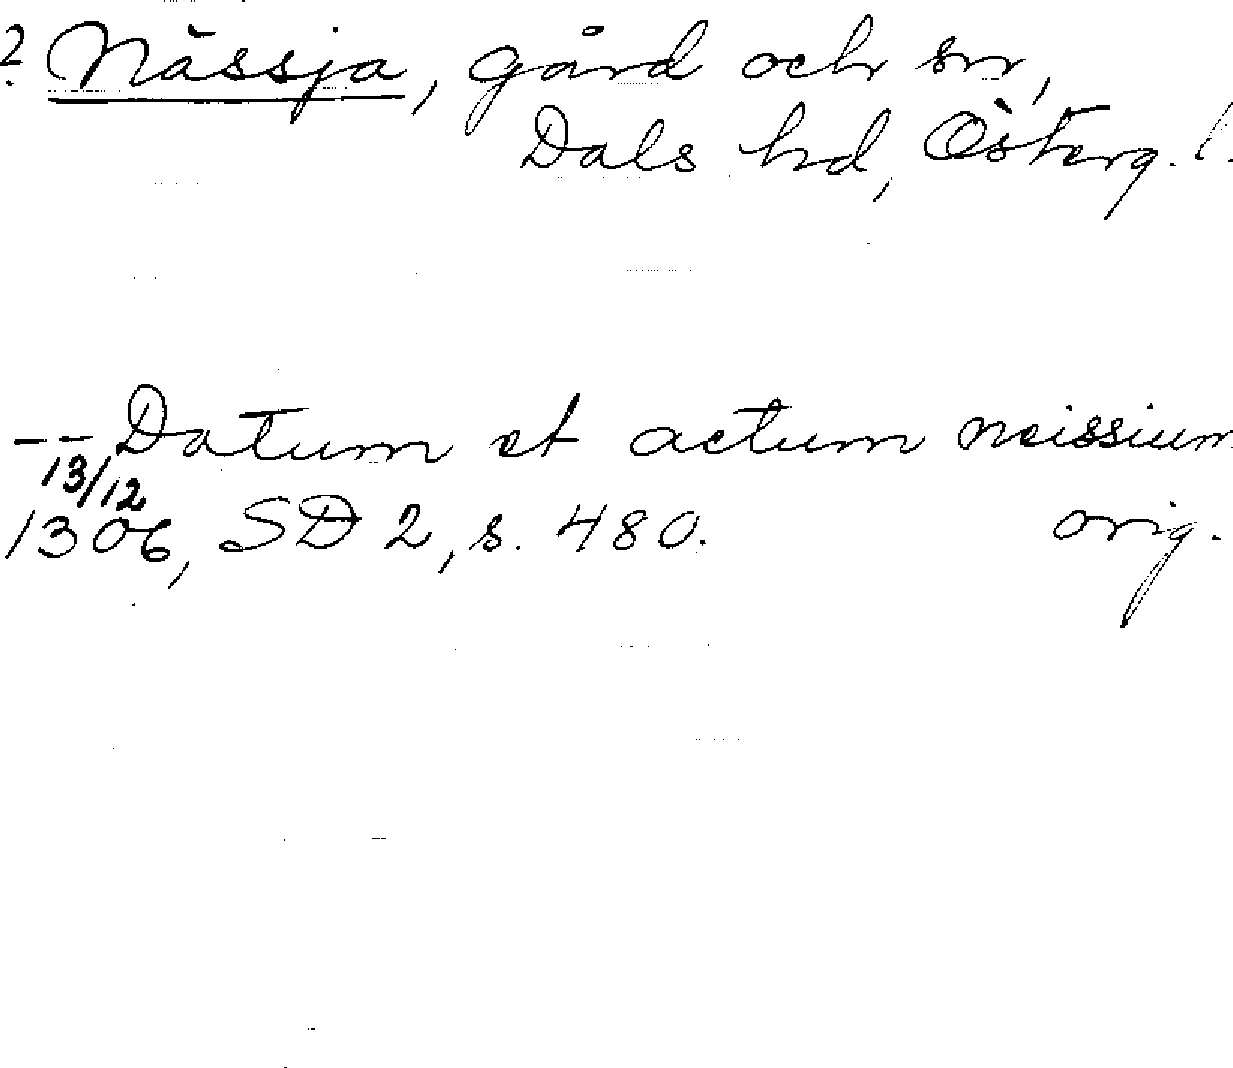 ? Nässja, gård och sn,
Dals hd, Österg. l.
-- Datum et actum neissium
13/12
1306, SD 2, s. 480. orig.